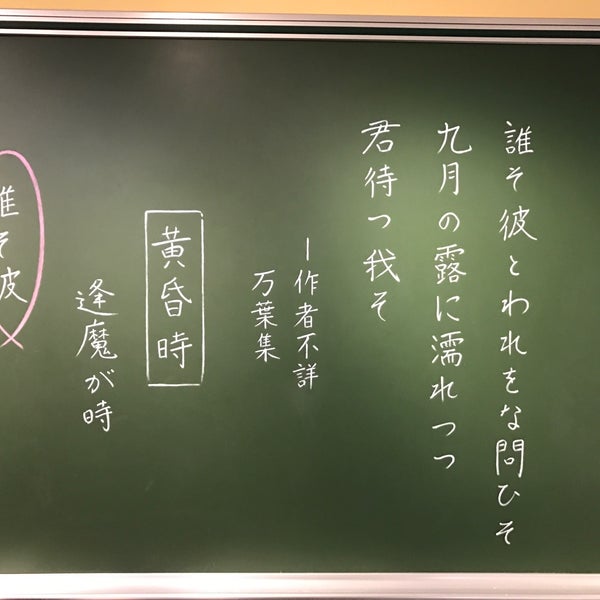 誰そ彼とわれをな問ひそ
九月の露に濡れつつ
君待つ我そ
ー作者不詳
万葉集
黄昏時
逢魔が時
誰そ彼